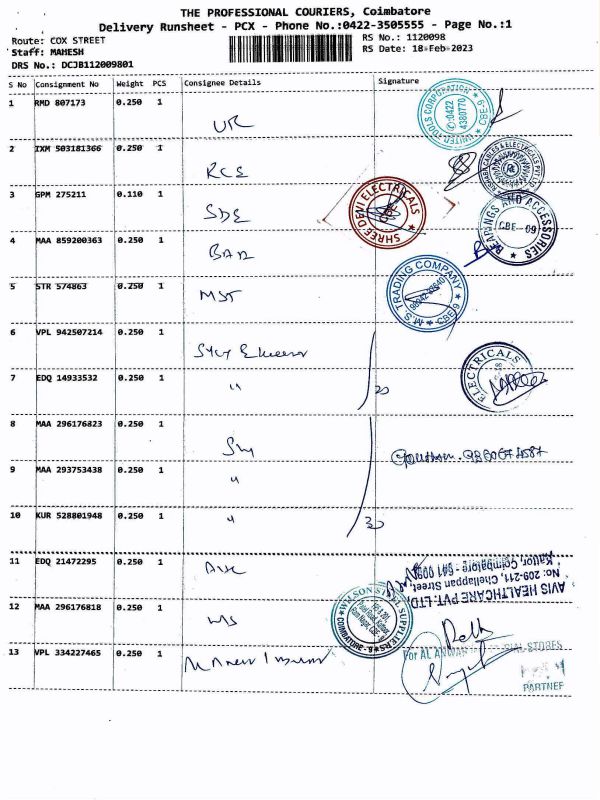 THE PROFESSIONAL COURIERS, Coimbatore
Delivery Runsheet - PCX - Phone No.:0422-3505555 - Page No.:1
Route: COX STREET
RS No.: 1120098
Staff: MAHESH
RS Date: 18-Feb-2023
DRS No.: DCJB112009801
S No Consignment No Weight PCS Consignee Details Signature
1 RMD 807173 0.250 1 UR
UNITED TOOLS CORPORATION ★ CBE-9 ★ 0422 4380770
2 IXM 503181366 0.250 1 RCE
CABLES & ELECTRICALS PVT LTD
3 GPM 275211 0.110 1 SDE
SHREE DEVI ELECTRICALS
4 MAA 859200363 0.250 1 BAR
BEARINGS AND ACCESSORIES CBE - 09
5 STR 574863 0.250 1 MST
M.S. TRADING COMPANY ★ CBE-9
6 VPL 942507214 0.250 1
ELECTRICALS
7 EDQ 14933532 0.250 1 "
8 MAA 296176823 0.250 1
9 MAA 293753438 0.250 1 "
10 KUR 528801948 0.250 1 "
11 EDQ 21472295 0.250 1
AVIS HEALTHCARE PVT. LTD
No: 209-211, Chellappan Street,
Kattor, Coimbatore - 641 009
12 MAA 296176818 0.250 1 WS
WILSON STEEL SUPPLIERS COIMBATORE - 9
13 VPL 334227465 0.250 1
For AL STORES
PARTNER